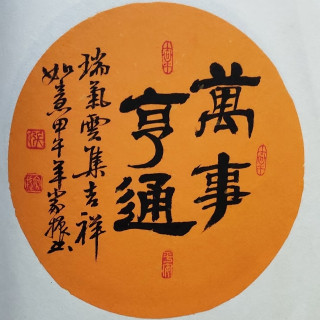 萬事
亨通
瑞氣雲集吉祥
如意甲午年